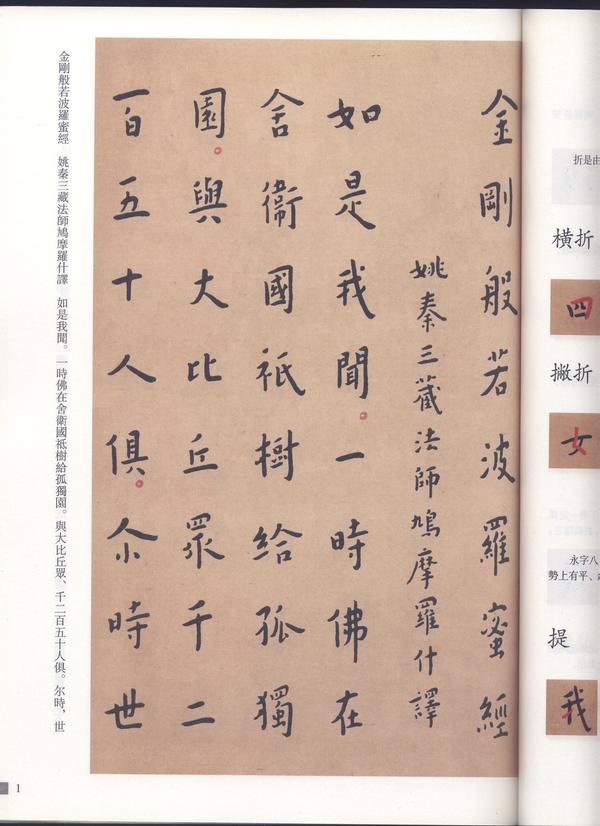 折是由
橫折
四
撇折
女
永字八
勢上有平、
提
我
金剛般若波羅蜜經
姚秦三藏法師鳩摩羅什譯
如是我聞。一時佛在
舍衞國祇樹給孤獨
園。與大比丘眾千二
百五十人俱。尒時世
金剛般若波羅蜜經　姚秦三藏法師鳩摩羅什譯　如是我聞。一時佛在舍衛國祇樹給孤獨園。與大比丘眾、千二百五十人俱。尔時，世
1